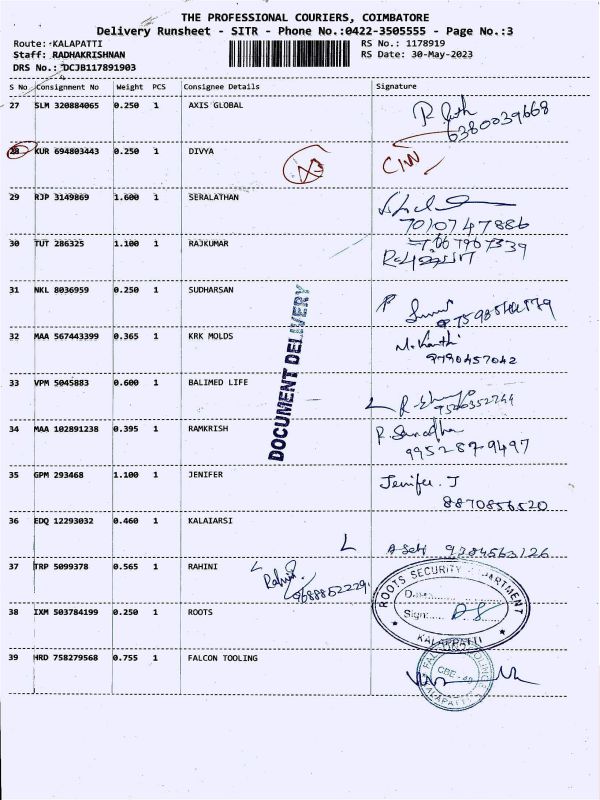 THE PROFESSIONAL COURIERS, COIMBATORE
Delivery Runsheet - SITR - Phone No.:0422-3505555 - Page No.:3
Route: KALAPATTI RS No.: 1178919
Staff: RADHAKRISHNAN RS Date: 30-May-2023
DRS No.: DCJB117891903
S No Consignment No Weight PCS Consignee Details Signature
27 SLM 320884065 0.250 1 AXIS GLOBAL
6380039668
28 KUR 694803443 0.250 1 DIVYA
29 RJP 3149869 1.600 1 SERALATHAN
7010747886
30 TUT 286325 1.100 1 RAJKUMAR
31 NKL 8036959 0.250 1 SUDHARSAN
32 MAA 567443399 0.365 1 KRK MOLDS
9790457042
33 VPM 5045883 0.600 1 BALIMED LIFE
DOCUMENT DELIVERY
34 MAA 102891238 0.395 1 RAMKRISH
9952879497
35 GPM 293468 1.100 1 JENIFER Jenifer. J
8870856520
36 EDQ 12293032 0.460 1 KALAIARSI
9384563126
37 TRP 5099378 0.565 1 RAHINI
ROOTS SECURITY DEPARTMENT
Sign:
KALAPPATTI
38 IXM 503784199 0.250 1 ROOTS
39 HRD 758279568 0.755 1 FALCON TOOLING
KALAPATTI